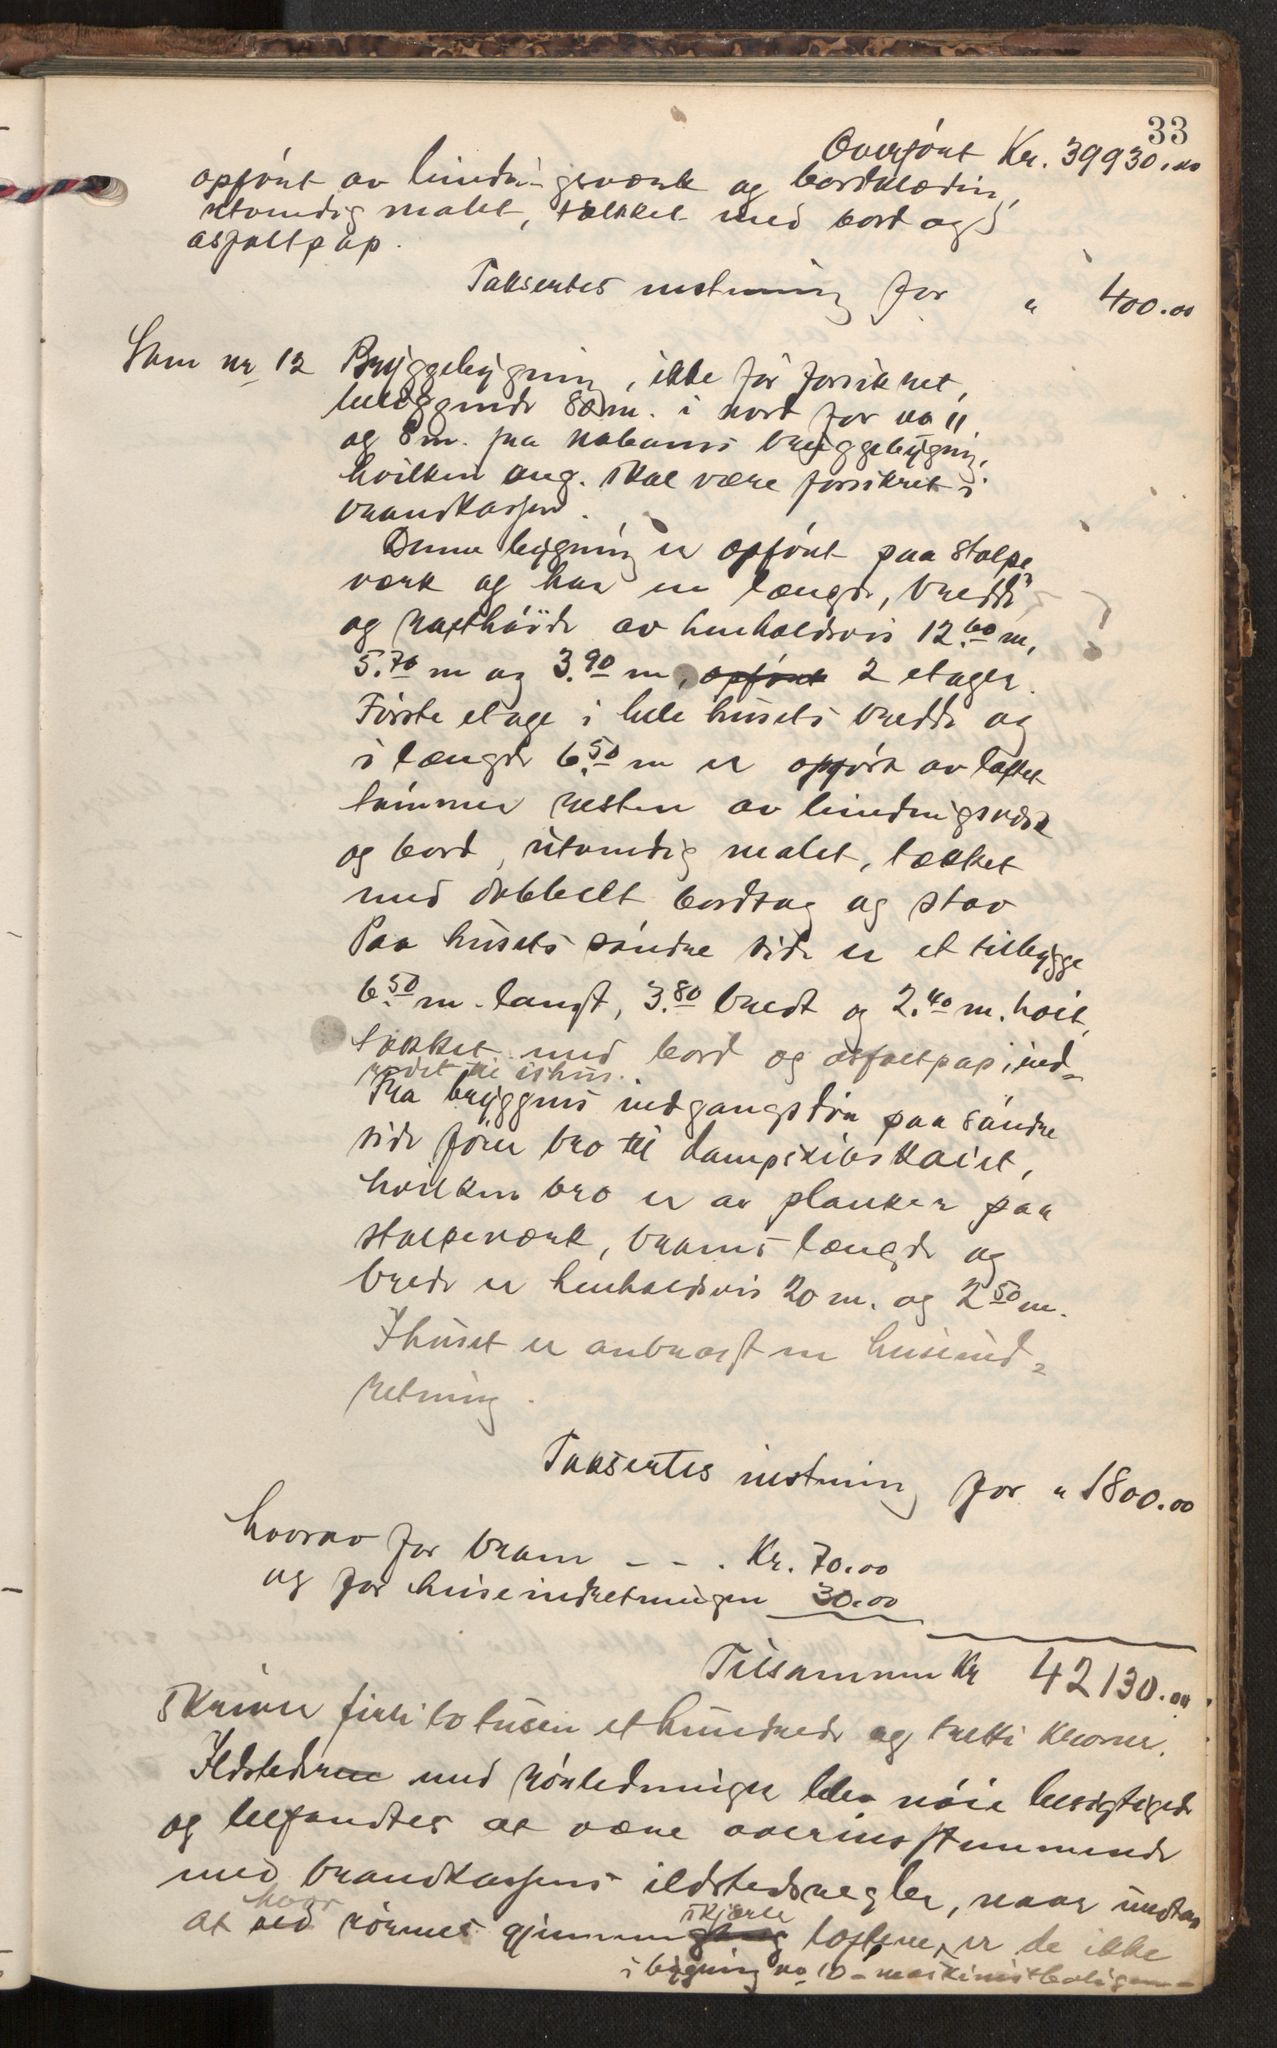 33
Overført Kr. 39930.00
opført av bindingsverk og bordklædn,
utvendig malet, tækket med bord og
asfaltpap.
Taksertes uten tomtning for " 400.00
Som nr 12 Bryggebygning, ikke før forsikret,
beliggende 82 m. i nord for no 11
og 8 m. fra naboens bryggebygning,
hvilken ang. skal være forsikret i
brandkassen.
Denne bygning er opført paa stolpe
værk og har en længde, bredde
og rafthøide av henholdsvis 12.60 m,
5.70 m og 3.90 m, opført 2 etager.
Første etage i hele husets bredde og
i længde 6.50 m er opført av laftet
tømmer resten av bindingsverk
og bord, utvendig malet, tækket
med dobbelt bordtag og stav
Paa husets søndre side er et tilbygge
6.50 m. langt, 3.80 bredt og 2.40 m. høit,
tækket med bord og asfaltpap, ind-
redet til ishus.
Fra bryggens indgangsdør paa søndre
side fører bro til dampskibskaiet,
hvilken bro er av planker paa
stolpeværk, broens længde og
brede er henholdsvis 20 m. og 2.50 m.
I huset er anbragt en heiseind-
retning.
Taksertes for " 1800.00
hvorav for broen - - . Kr. 70.00
og for heiseindretningen 30.00
Tilsammen Kr 42130.00
skriver firti to tusen et hundrede og tretti kroner.
Ildstederne med rørledninger blev nøie besigtiget
og befandtes at være overensstemmende
med brandkassens ildstedsregler, naar undtas
at hvor ved rørenes gjennemgang skjærer loftene, er de ikke
i bygning no 10 - maskinistboligen -